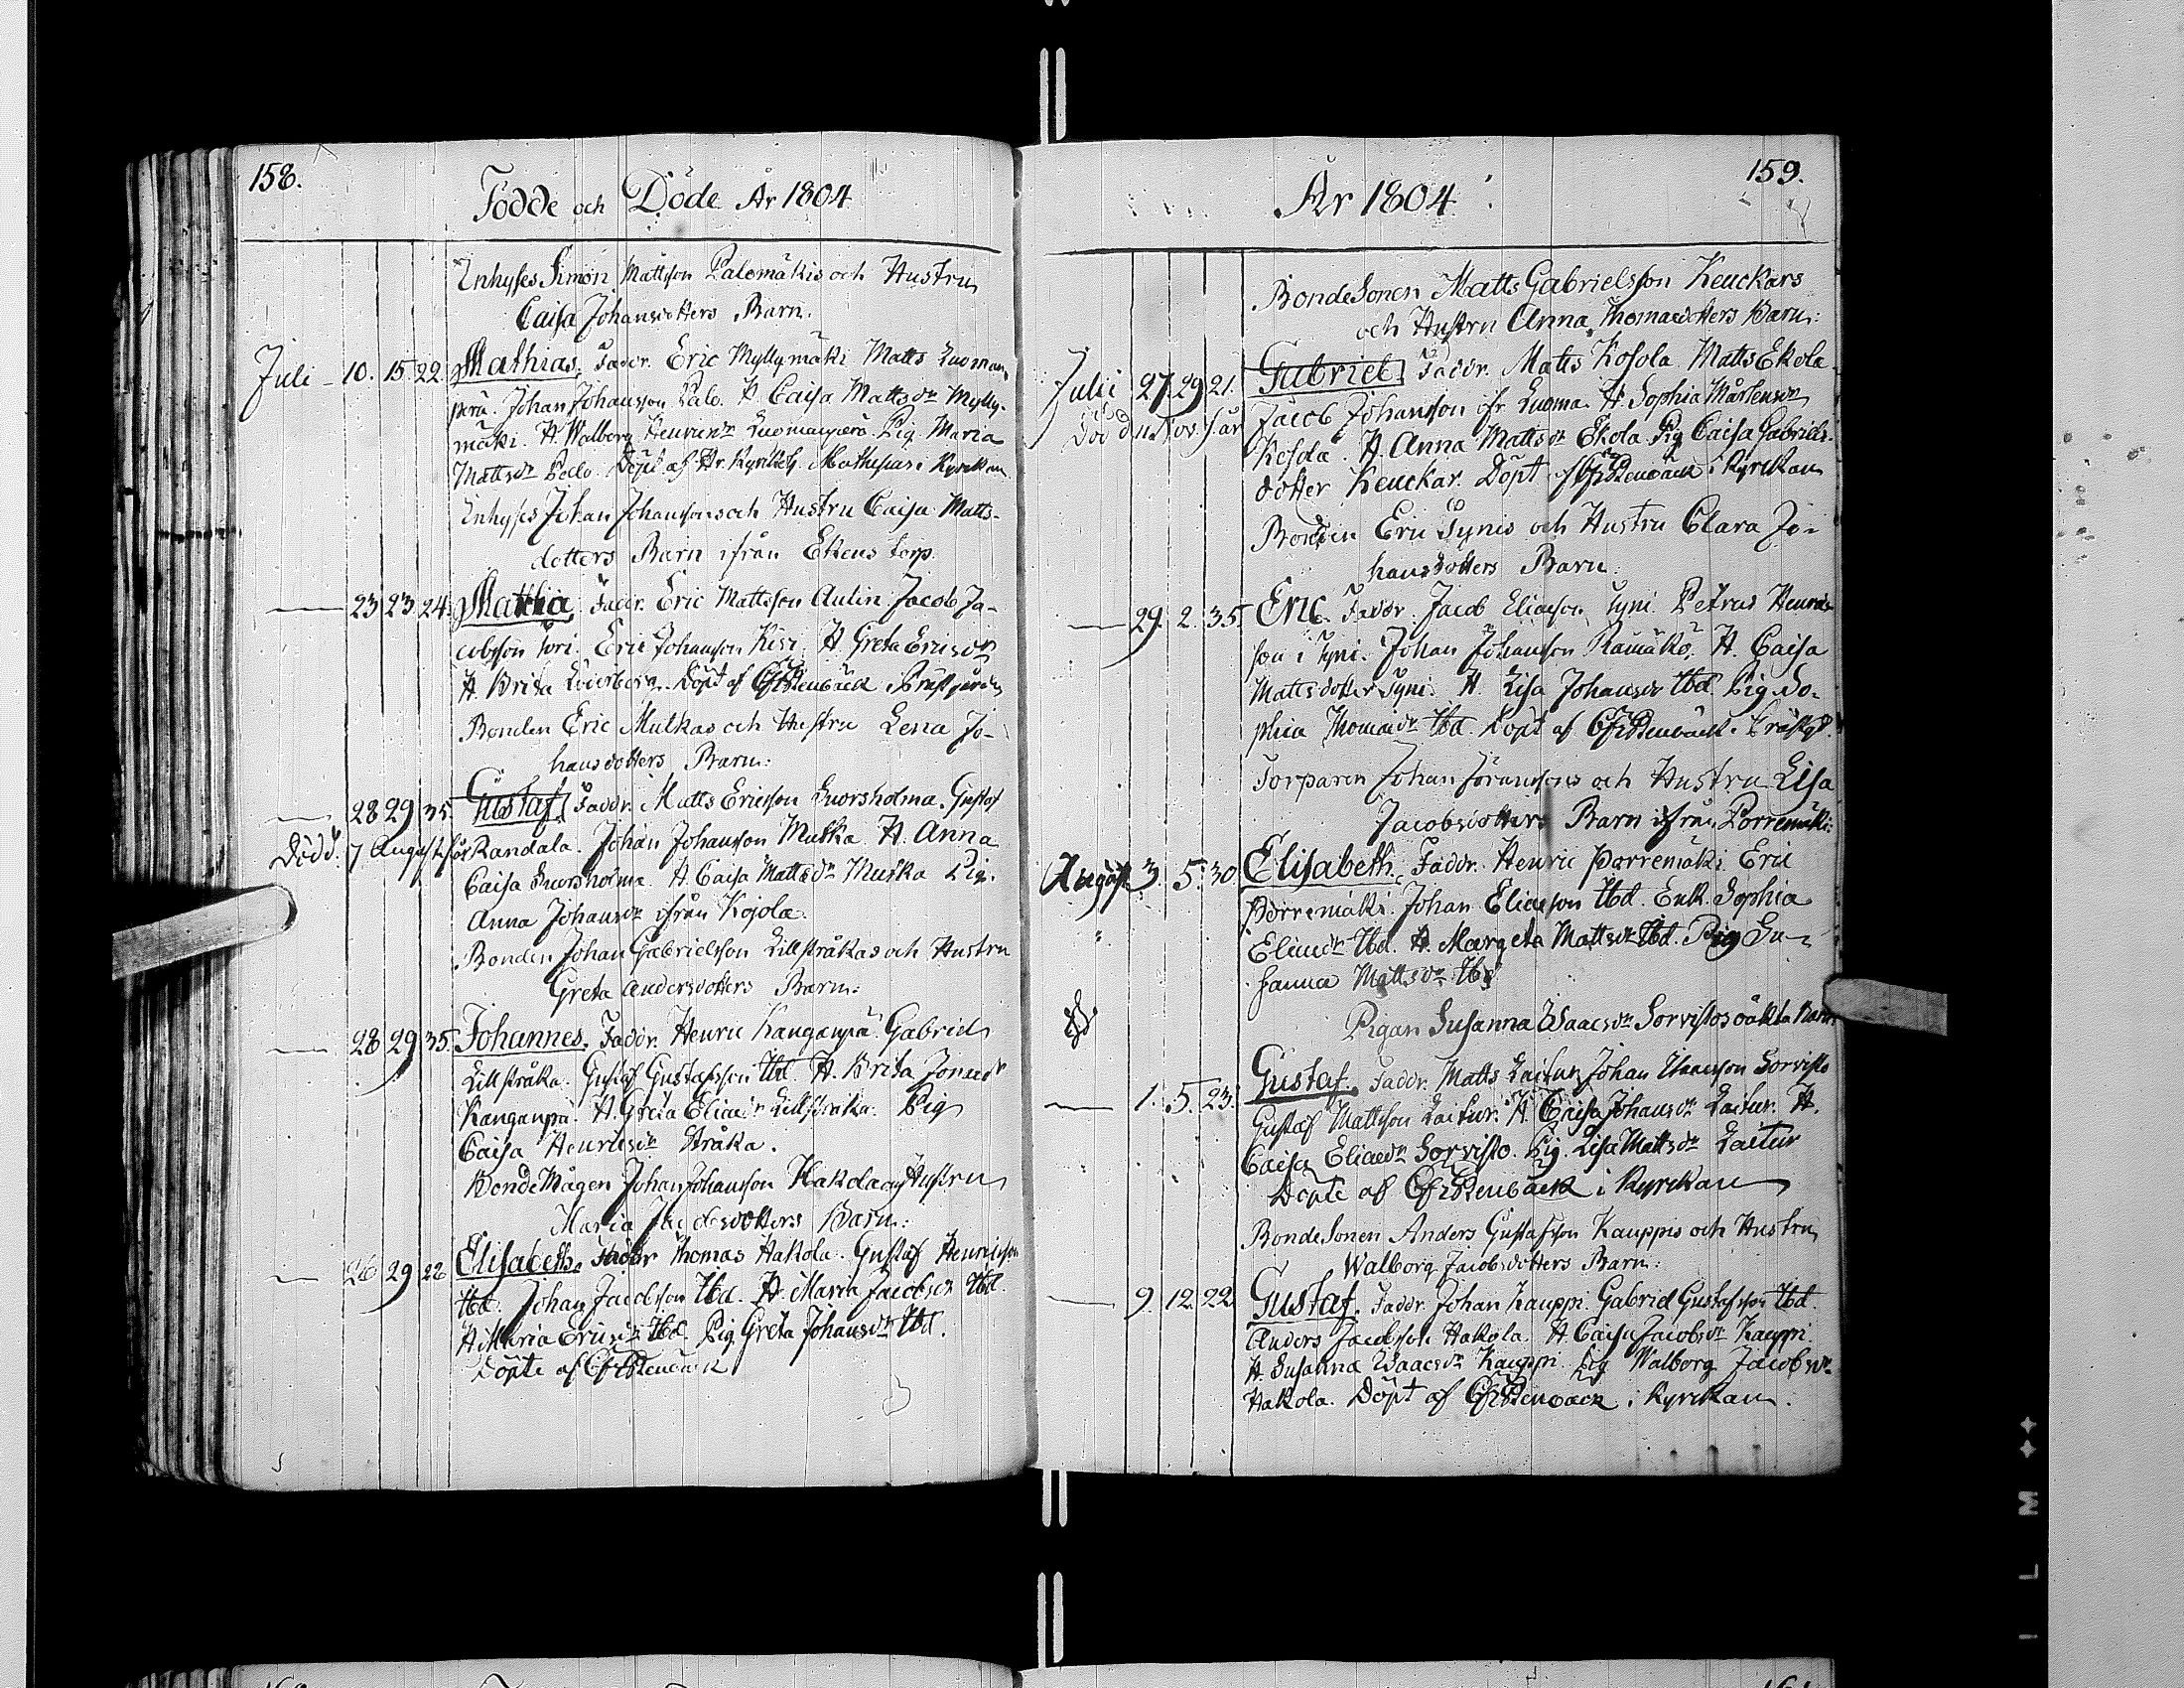 158.
Födde och Döde År 1804
Inhyses Simon Mattsson Palomäkis och Hustru
Caisa Johansdotters Barn.
Juli - 10. 15. 22. Mathias. Faddr. Eric Myllymäki Matts Luoman
perä. Johan Johansson Palo. H. Caisa Mattsdr Mylly-
mäki. H. Walborg Henricsdr Luomanperä. Pig. Maria
Mattsdr Palo. Döpt af Hr. Kyrkoh. Mathesius i Kyrckan
Inhyses Johan Johanssons och Hustru Caisa Matts-
dotters Barn ifrån Ekens torp.
23 23 24. Maria. Faddr. Eric Mattsson Aulin Jacob Ja-
cobsson Eric Johansson H. Greta Ericsdr
H. Brita Döpt af Præstgården
Bonden Eric Mutkas och Hustru Lena Jo-
hansdotters Barn:
28 29 35. Gustaf. Faddr. Matts Ericsson Luorsholma. Gustaf
Dödd. 7 August Randala. Johan Johansson Mutka. H. Anna
Caisa Luorsholma. H. Caisa Mattsdr Mutka Pig.
Anna Johansdr ifrån Kojola.
Bonden Johan Gabrielsson Lillstråkas och Hustru
Greta Andersdotters Barn:
28 29 35. Johannes. Faddr. Henric Kanganpä. Gabriel
Lillstråka. Gustaf Gustafsson Ibd. H. Brita Jonasdr
Kanganpä. H. Greta Eliaedr Lillstråka. Pig
Caisa Henricsdr Stråka.
BondeMågen Johan Johansson Hakola och Hustru
Maria Jacobsdotters Barn:
26 29 28 Elisabeth. Faddr Thomas Hakola. Gustaf Henricsson
Ibd. Johan Jacobsson Ibd. H. Maria Jacobsdr Ibd.
H. Maria Ericsdr Ibd. Pig Greta Johansdr Ibd.
Döpte af
159.
År 1804
BondeSonen Matts Gabrielsson Keuckars
och Hustru Anna Thomaedotters Barn:
Julii 27. 29. 21. Gabriel. Faddr. Matts Kosola. Matts Ekola
Död d. Nov. Jacob Johansson ifr. Luoma. H. Sophia Mårtensdr
Kosola. H. Anna Mattsdr Ekola. Pig Caisa Gabriels-
dotter Keuckar. Döpt af i Kyrckan
Bonden Eric Tynis och Hustru Clara Jo-
hansdotters Barn:
29. 2. 35. Eric. Faddr. Jacob Eliaeson Tyni. Petrus Henrics-
son i Tyni. Johan Johansson Ramäkö. H. Caisa
Mattsdotter Tyni. H. Lisa Johansdr Ibd. Pig So-
phia Thomaedr Ibd. Döpt af i Præstgd.
Torparen Johan Johanssons och Hustru Lisa
Jacobsdotters Barn ifrån Porremäki:
August 3. 5. 30. Elisabeth. Faddr. Henric Porremäki. Eric
Porremäki. Johan Eliaeson Ibd. Enk. Sophia
Eliaedr Ibd. H. Margeta Mattsdr Ibd. Pig Su-
sanna Mattsdr Ibd
Pigan Susanna Isaacsdr Sorvistos oäkta Barn
1. 5. 23. Gustaf. Faddr. Matts Laitur. Johan Isaacsson Sorvisto
Gustaf Mattsson Laitur. H. Caisa Johansdr Laitur. H.
Caisa Eliaedr Sorvisto. Pig. Lisa Mattsdr Laitur
Döpte af i Kyrckan
BondeSonen Anders Gustafsson Kauppis och Hustru
Walborg Jacobsdotters Barn:
9. 12. 22. Gustaf. Faddr. Johan Kauppi. Gabriel Gustafsson Ibd.
Anders Jacobsson Hakola. H. Caisa Jacobsdr Kauppi.
H. Susanna Isaacsdr Kauppi. Pig Walborg Jacobsdr
Hakola. Döpt af i Kyrckan.